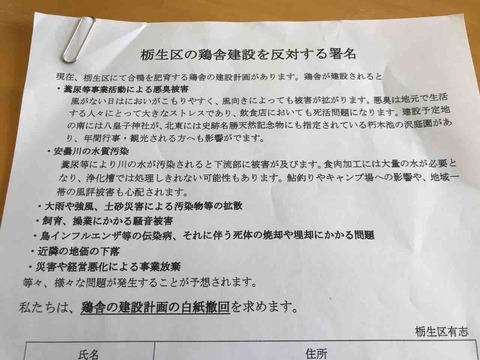 栃生区の鶏舎建設を反対する署名
現在、栃生区にて合鴨を肥育する鶏舎の建設計画があります。鶏舎が建設されると
・糞尿等事業活動による悪臭被害
風がない日はにおいがこもりやすく、風向きによっても被害が拡がります。悪臭は地元で生活
する人々にとって大きなストレスであり、飲食店においても死活問題になります。建設予定地
の南には八皇子神社が、北東には史跡名勝天然記念物にも指定されている朽木池の沢庭園があ
り、年間行事・観光される方へも影響がでます。
・安曇川の水質汚染
糞尿等により川の水が汚染されると下流部に被害が及びます。食肉加工には大量の水が必要と
なり、浄化槽では処理しきれない可能性もあります。鮎釣りやキャンプ場への影響や、地域一
帯の風評被害も心配されます。
・大雨や強風、土砂災害による汚染物等の拡散
・飼育、操業にかかる騒音被害
・鳥インフルエンザ等の伝染病、それに伴う死体の焼却や埋却にかかる問題
・近隣の地価の下落
・災害や経営悪化による事業放棄
等々、様々な問題が発生することが予想されます。
私たちは、鶏舎の建設計画の白紙撤回を求めます。
栃生区有志
氏名 住所